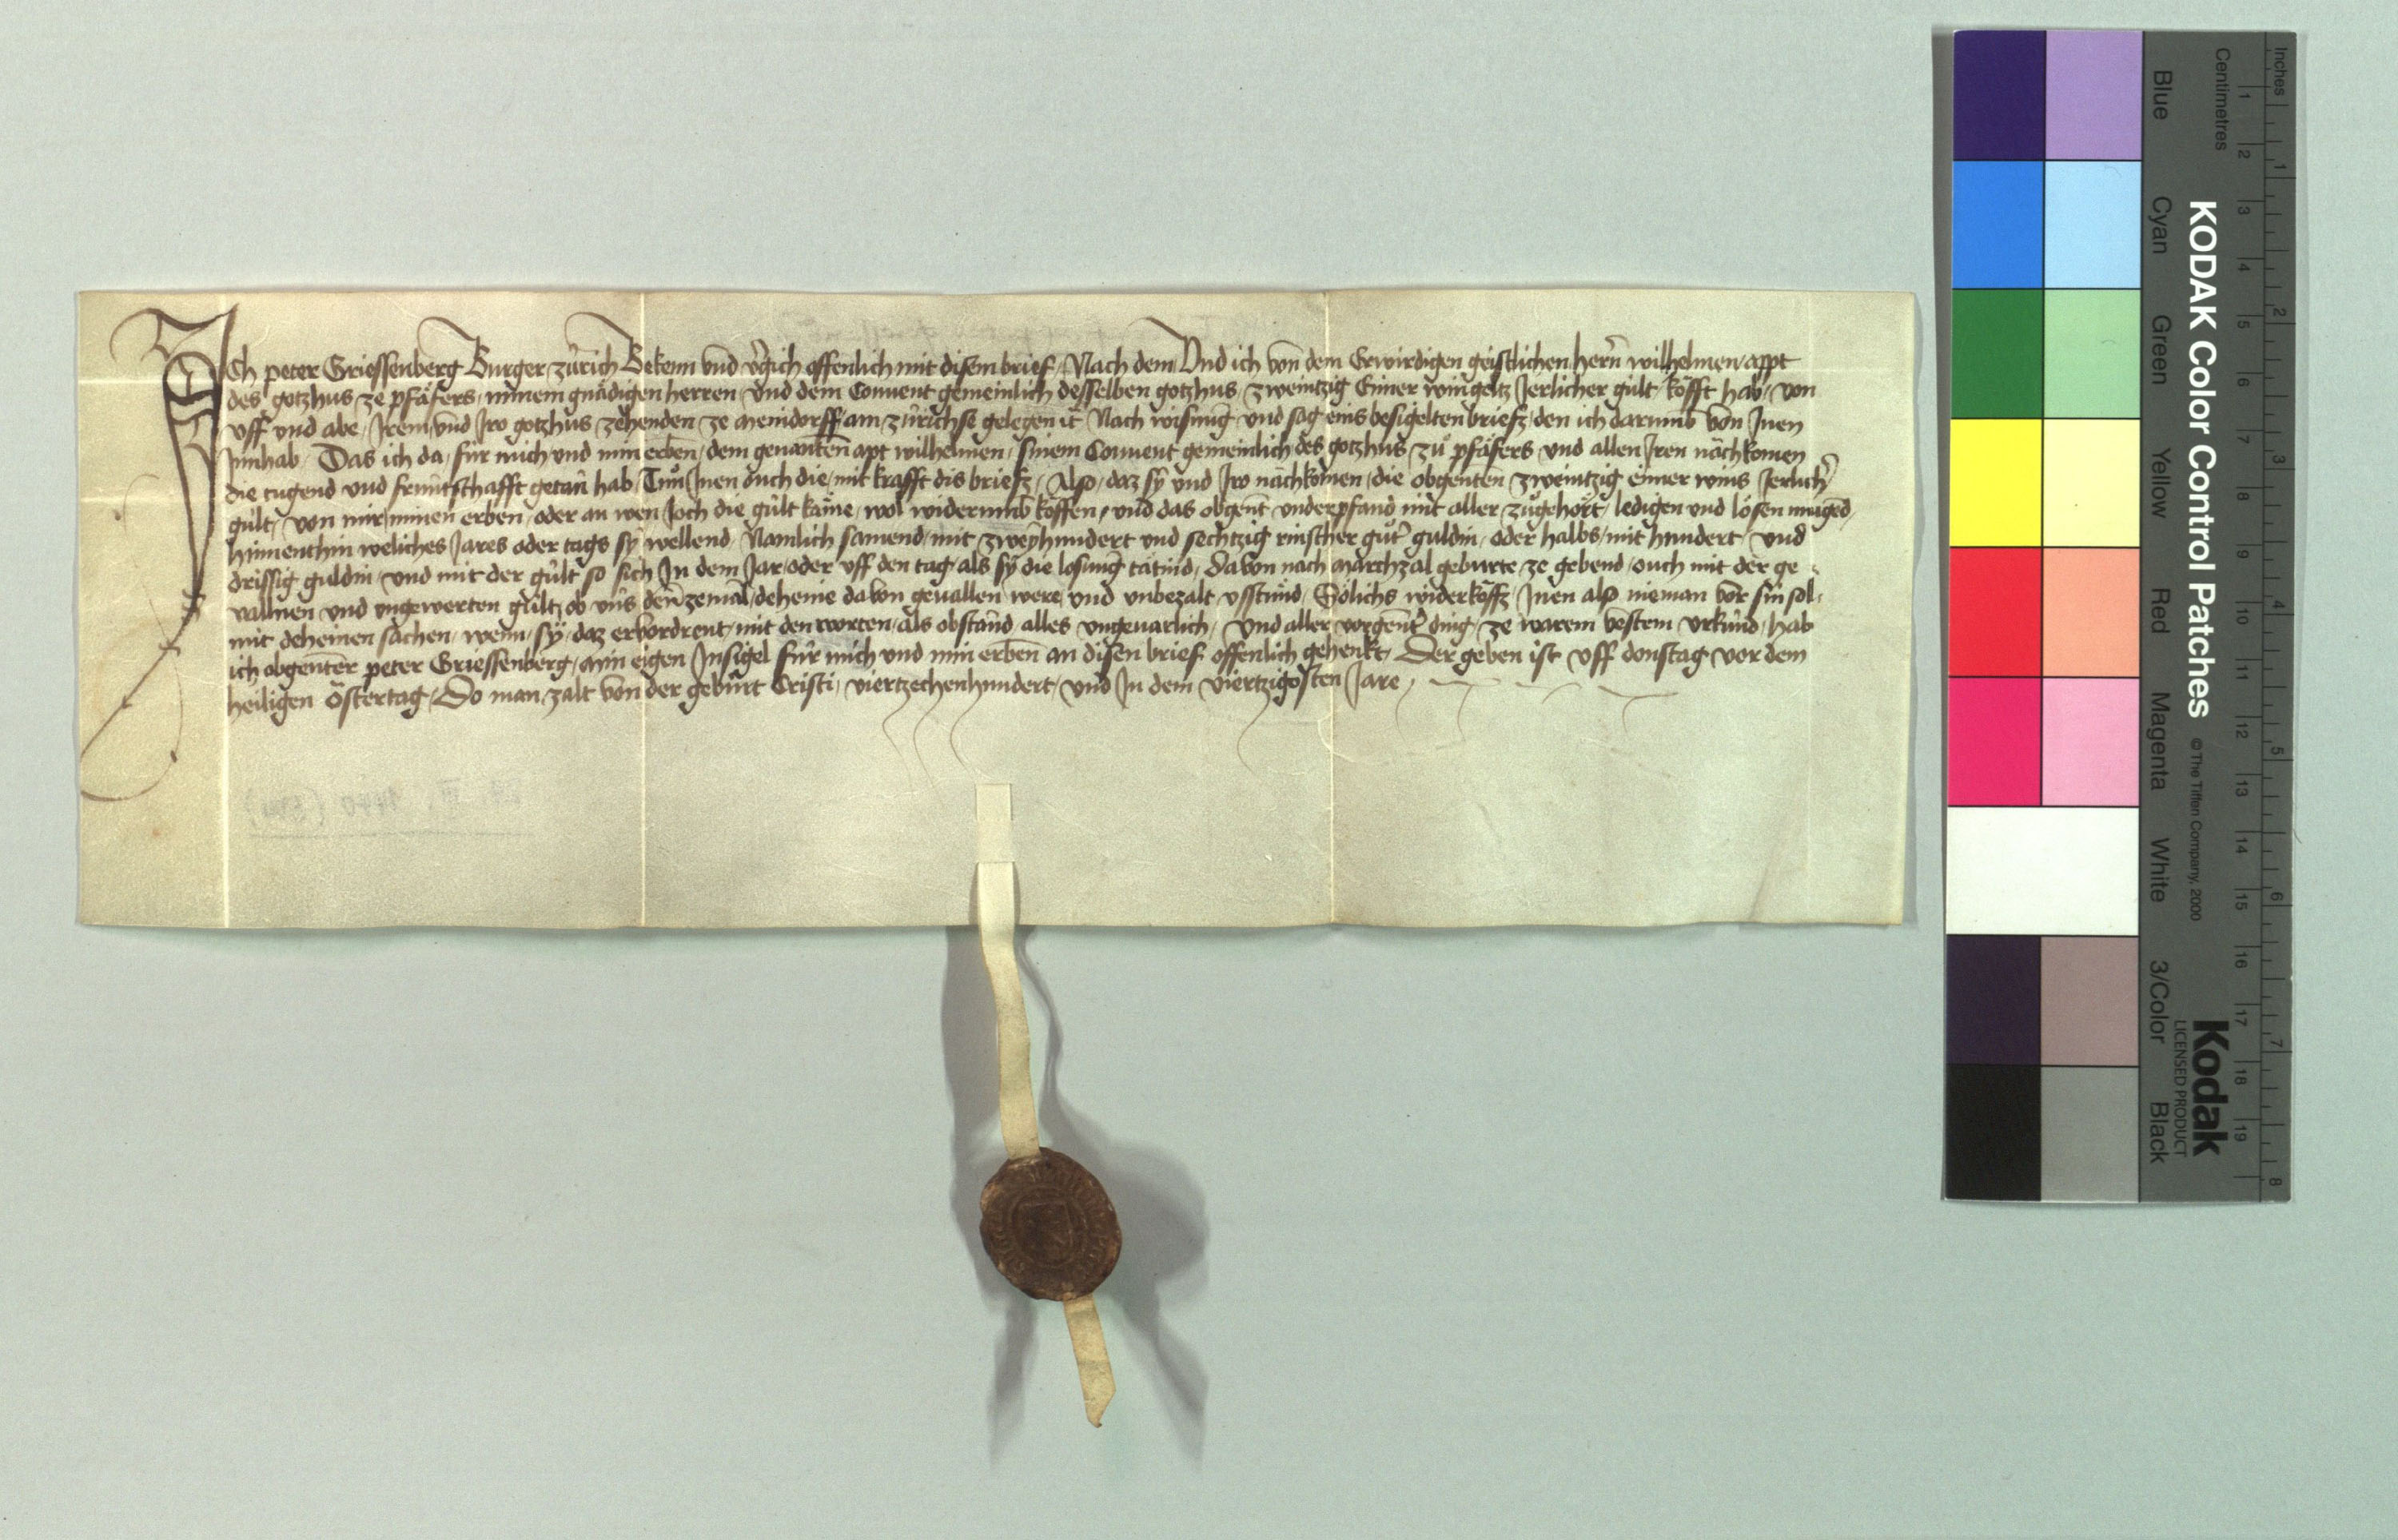 Ich peter Griessenberg Burger zürich Bekenn vnd vgich offenlich mit disem brief / Nach dem Vnd ich von dem Erwirdigen geistlichen hern wilhelmen / appt
des gotzhus ze pfäfers / minem gnädigen herren / vnd dem Conuent gemeinlich desselben gotzhus / zweintzig Eimer wingeltz Jerlicher gült / köfft hab / von
vff vnd abe / Jrem / vnd Jro gotzhus zehenden ze meindorff / am zürichse gelegen Nach wisung vnd sag eins besigelten briefz / den ich darumb von Jnen
Jnnhab / Das ich da / für mich vnd min erben / dem genanten apt wilhelmen / sinem Conuent gemeinlich des gotzhus zů pfäfers vnd allen Jren nächkomen
die tugend vnd früntschafft getan hab / Tůn Jnen ouch die / mit krafft dis briefz / Also / daz sÿ vnd Jro nächkomen / die obgenten zweintzig eimer wins Jerlich
gült / von mir / minen erben / oder an wen Joch die gült käme / wol widerumb köffen / vnd das obgent vnderpfand mit aller zůgehört / ledigen vnd lösen mugend /
hinnenthin weliches Jares oder tags sÿ wellend / Namlich samend / mit zweÿhundert vnd sechtzig rinscher gůt guldin / oder halbs / mit hundert / vnd
drissig guldin / vnd mit der gült so sich Jn dem Jar / oder vff den tag / als sÿ die losung tätind / davon nach marchzal geburte ze gebend / ouch mit der ge
vallnen vnd vngewerten gült / ob vns denzemal / deheine davon geuallen were / vnd vnbezalt vsstünd / Sölichs widerköffz / Jnen also nieman vor sin sol /
mit deheinen sachen / wenn / sÿ / daz ervordrent / mit den worten / als obständ alles vngeuarlich / Vnd aller vorgent ding / ze warem vestem vrkünd / hab
ich obgenter peter Griessenberg / min eigen Jnsigel für mich vnd min erben an disen brief offenlich gehenkt / Der geben ist vff donstag vor dem
heiligen Ostertag / Do man zalt von der gebürt Cristi / viertzechenhundert / vnd Jn dem viertzigosten Jare /
Inches
Centimetres
1 2 3 4 5 6 7 8 9 10 11 12 13 14 15 16 17 18 19
1 2 3 4 5 6 7 8
KODAK Color Control Patches
© The Tiffen Company, 2000
Kodak
LICENSED PRODUCT
Blue Cyan Green Yellow Red Magenta White 3/Color Black